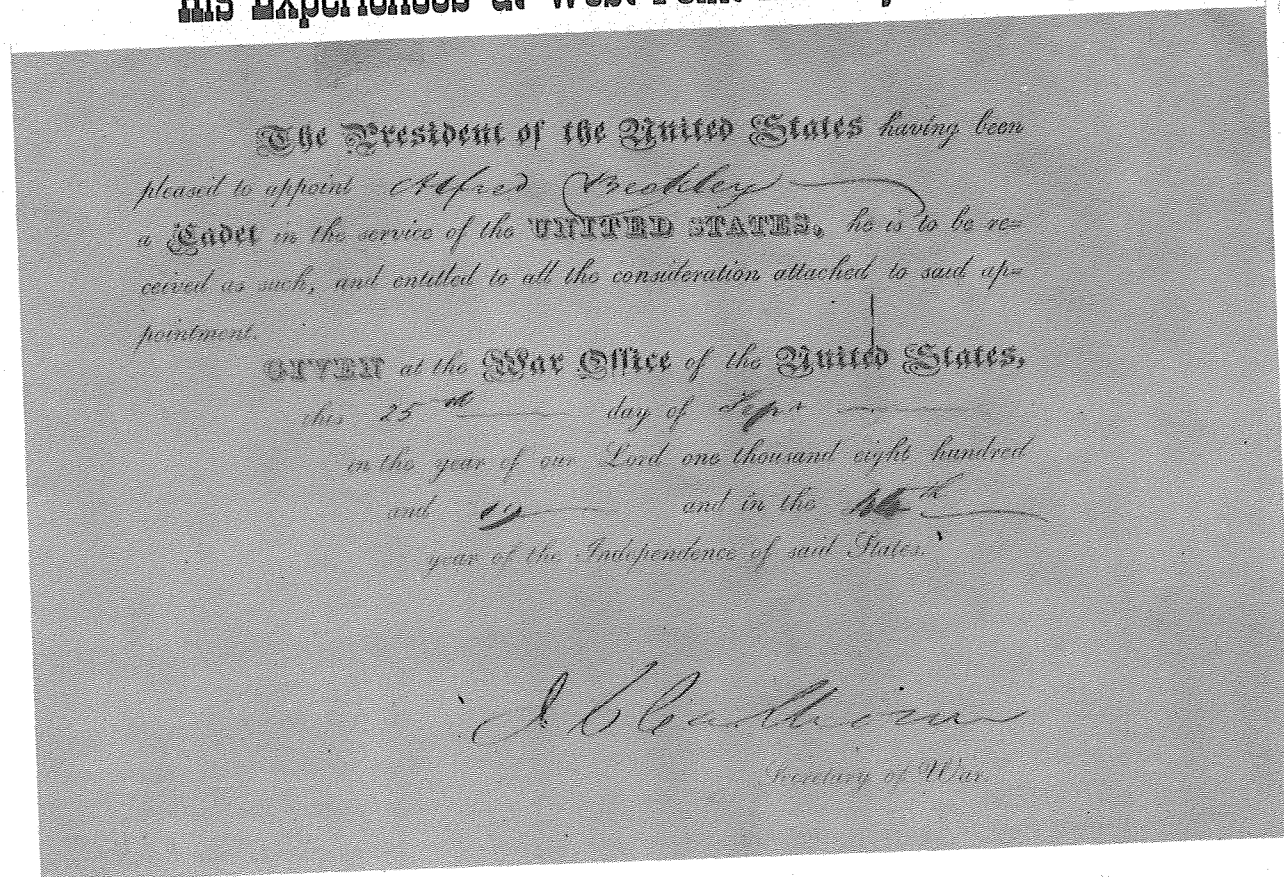 His Experiences at West Point
The President of the United States having been
pleased to appoint Alfred Beckley
a Cadet in the service of the UNITED STATES, he is to be re=
ceived as such, and entitled to all the consideration attached to said ap=
pointment.
GIVEN at the War Office of the United States,
this 25th day of Sept
in the year of our Lord one thousand eight hundred
and 19 and in the 44th
year of the Independence of said States.
J C Calhoun
Secretary of War.